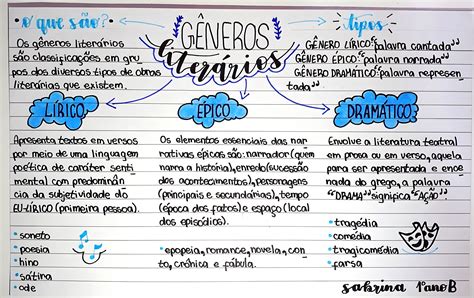 GÊNEROS
literários
o que são?
Os gêneros literários
são classificações em gru
pos dos diversos tipos de obras
literárias que existem.
tipos
GÊNERO LÍRICO "palavra cantada"
GÊNERO ÉPICO "palavra narrada"
GÊNERO DRAMÁTICO "palavra represen
tada"
LÍRICO
Apresenta textos em versos
por meio de uma linguagem
poética de caráter senti
mental com predominân
cia da subjetividade do
EU-LÍRICO (primeira pessoa).
• soneto
• poesia
• hino
• sátira
• ode
ÉPICO
Os elementos essenciais das nar
rativas épicas são: narrador (quem
narra a história), enredo (sucessão
dos acontecimentos), personagens
(principais e secundárias), tempo
(época dos fatos) e espaço (local
dos episódios).
• epopeia, romance, novela, con
to, crônica e fábula.
DRAMÁTICO
Envolve a literatura teatral
em prosa ou em verso, aquela
para ser apresentada e ence
nada do grego, a palavra
"DRAMA" significa "AÇÃO"
• tragédia
• comédia
• tragicomédia
• farsa
sabrina 1°ano B